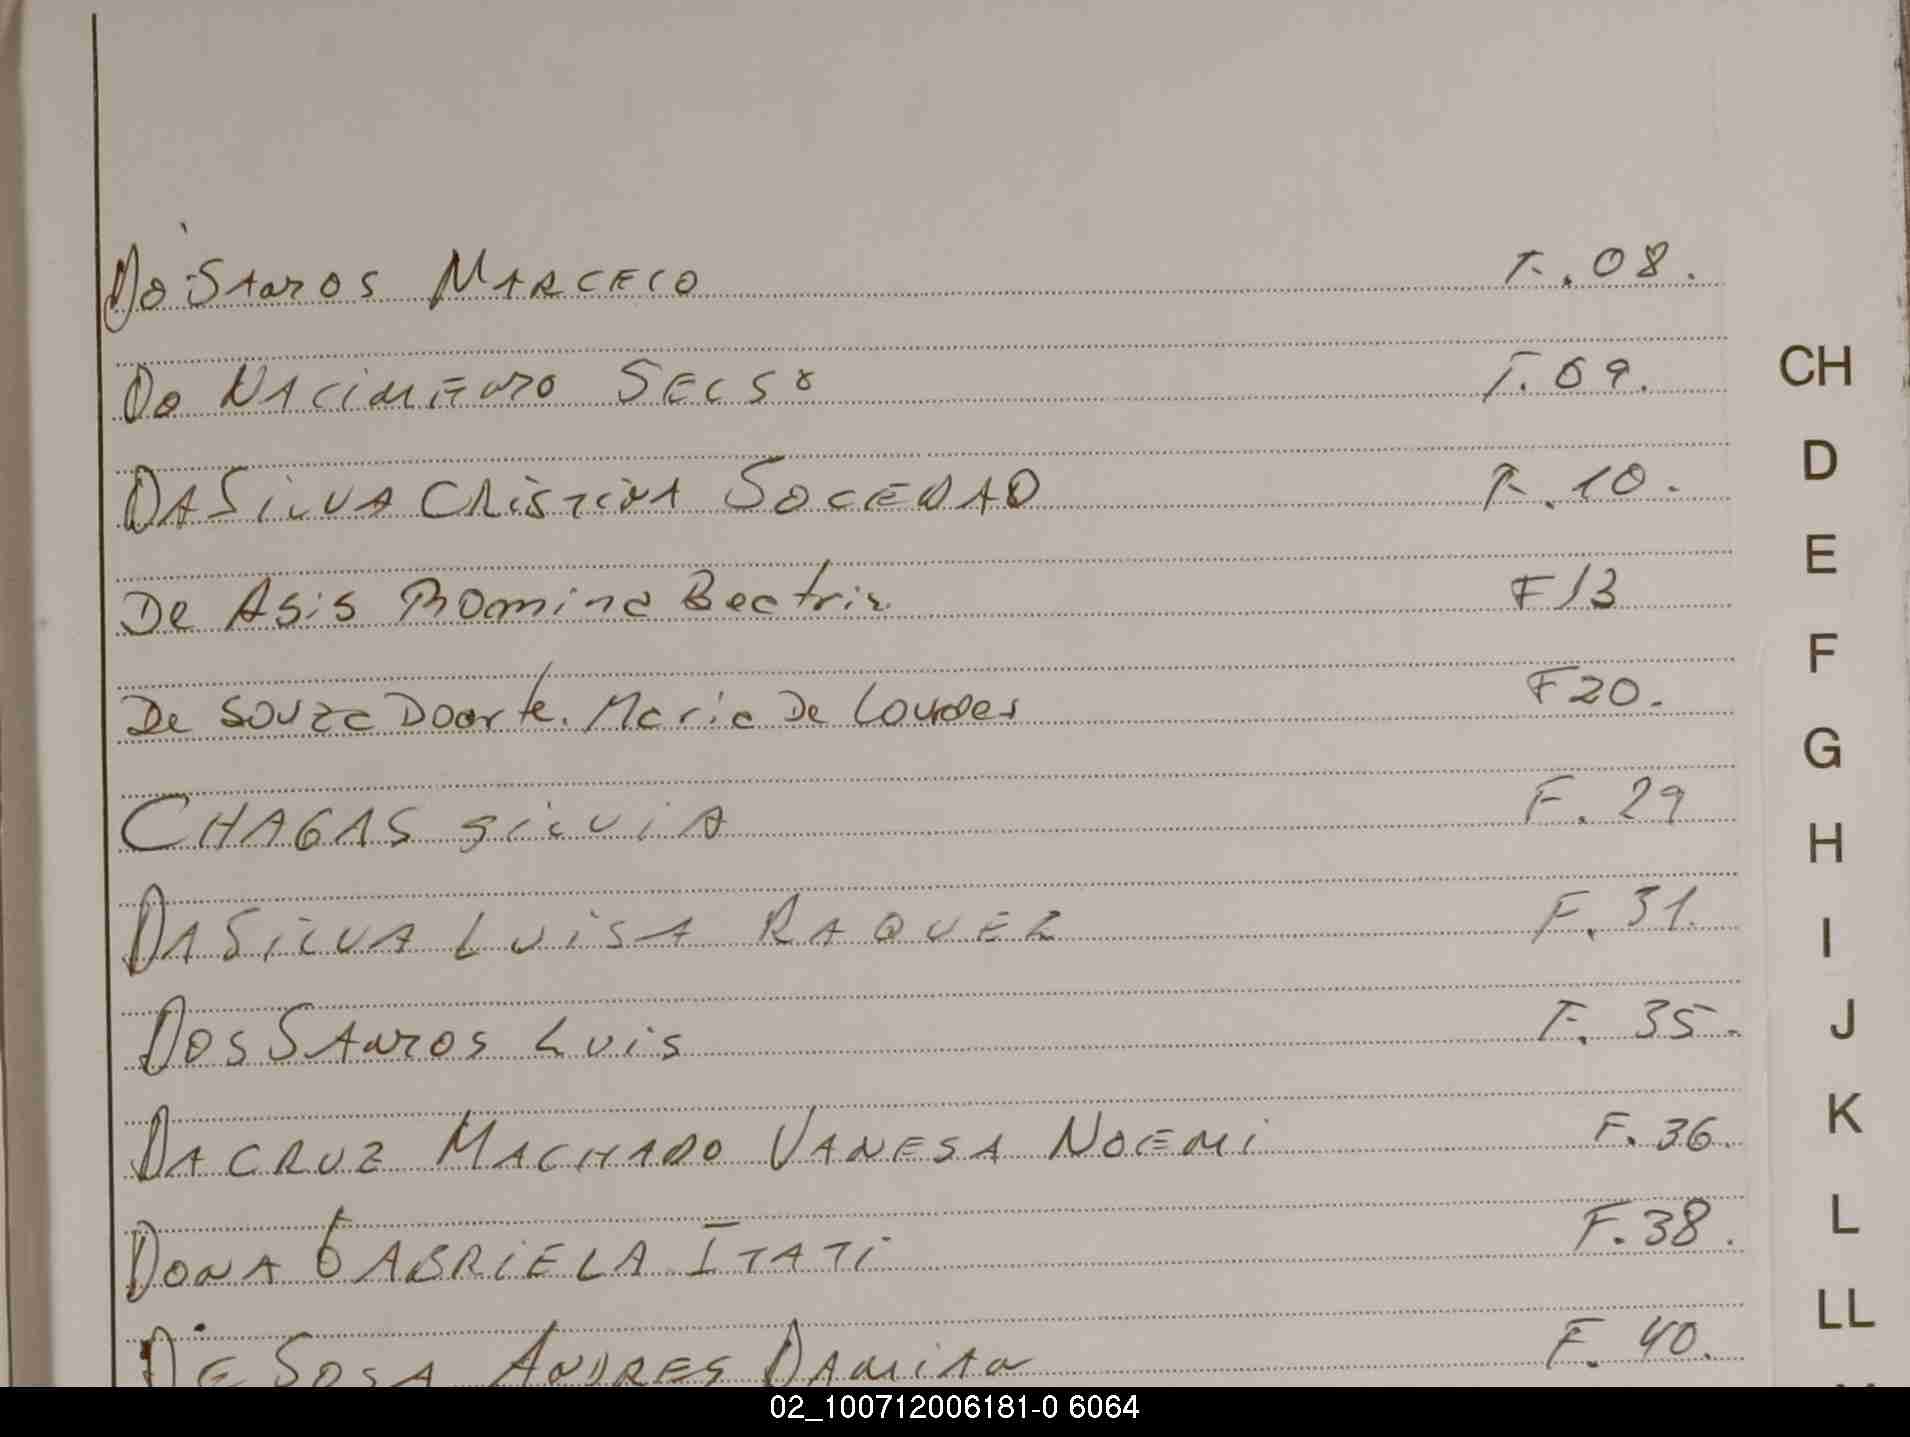 Do Santos MARCELO F. 08.
Do NACIMIENTO SELSO F. 09.
DA SILVA CRISTINA SOLEDAD F. 10.
De Asis Romina Beatriz F 13
De Souza Doarte. Maria De Lourdes F 20.
CHAGAS SILVIA F. 29
DA SILVA LUISA RAQUEL F. 31.
DOS SANTOS LUIS F. 35.
DA CRUZ MACHADO VANESA NOEMI F. 36.
DONA GABRIELA ITATI F. 38.
DE SOSA ANDRES DAMIAN F. 40.
CH
D
E
F
G
H
I
J
K
L
LL
02_100712006181-0 6064